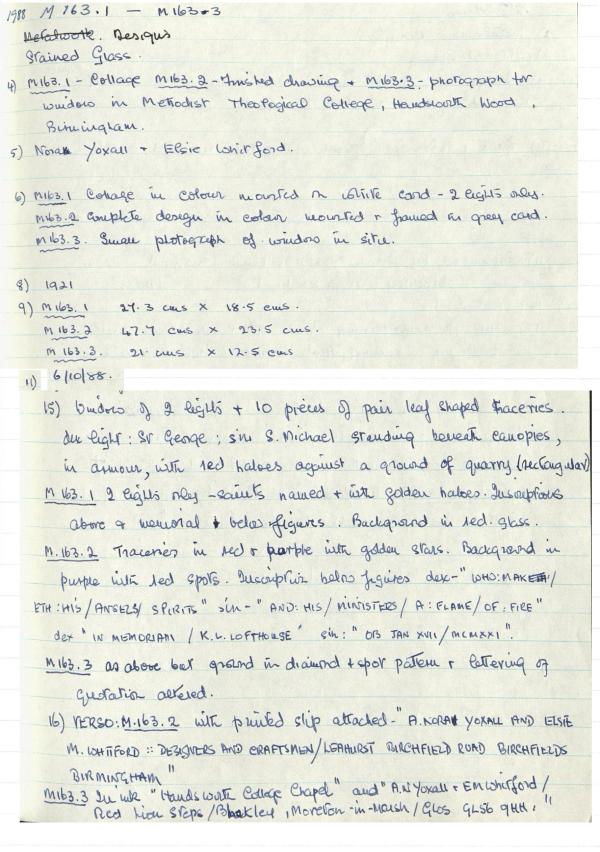 1988 M163.1 — M163.3
Metalwork. Designs
Stained Glass.
4) M163.1 - Collage M163.2 - Finished drawing + M163.3 - photograph for
window in Methodist Theological College, Handsworth Wood,
Birmingham.
5) Nora Yoxall + Elsie Whitford.
6) M163.1 Collage in colour mounted on white card - 2 lights only.
M163.2 Complete design in colour mounted + framed in grey card.
M163.3. Small photograph of window in situ.
8) 1921
9) M163.1 27.3 cms x 18.5 cms.
M163.2 47.7 cms x 23.5 cms.
M163.3. 21. cms x 12.5 cms
11) 6/10/88.
15) Window of 2 lights + 10 pieces of pair leaf shaped traceries.
dex light: St George; sin S. Michael standing beneath canopies,
in armour, with red haloes against a ground of quarry (rectangular)
M163.1 2 lights only - saints named + with golden haloes. Inscriptions
above & memorial + below figures. Background in red glass.
M.163.2 Traceries in red + purple with golden stars. Background in
purple with red spots. Inscription below figures dex - "WHO:MAK/
ETH:HIS/ANGELS/SPIRITS" sin - "AND:HIS/MINISTERS/A:FLAME/OF:FIRE"
dex "IN MEMORIAM / K.L. LOFTHOUSE" sin: "OB JAN XVII/MCMXXI".
M163.3 as above but ground in diamond + spot pattern + lettering of
quotation altered.
16) VERSO: M.163.2 with printed slip attached - "A.NORA YOXALL AND ELSIE
M. WHITFORD :: DESIGNERS AND CRAFTSMEN/LEAHURST BIRCHFIELD ROAD BIRCHFIELDS
BIRMINGHAM"
M163.3 In ink "Handsworth College Chapel" and "A.N Yoxall + EM Whitford/
Red Lion Steps/Blockley, Moreton-in-Marsh/Glos GL56 9HH."